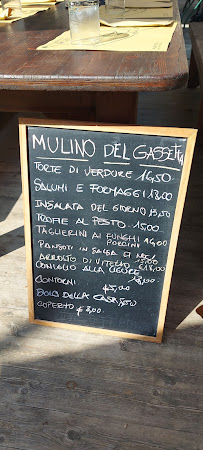 MULINO DEL GASSETTA
TORTE DI VERDURE 14,50
SALUMI E FORMAGGI 13,00
INSALATA DEL GIORNO 13,50
TROFIE AL PESTO 15,00
TAGLIERINI AI FUNGHI
PORCINI 16,00
PANSOTI IN SALSA DI NOCI
15,00
ARROSTO DI VITELLO € 18,00
CONIGLIO ALLA LIGURE
18,00
CONTORNI €5,00
DOLCI DELLA CASA
COPERTO € 3,00